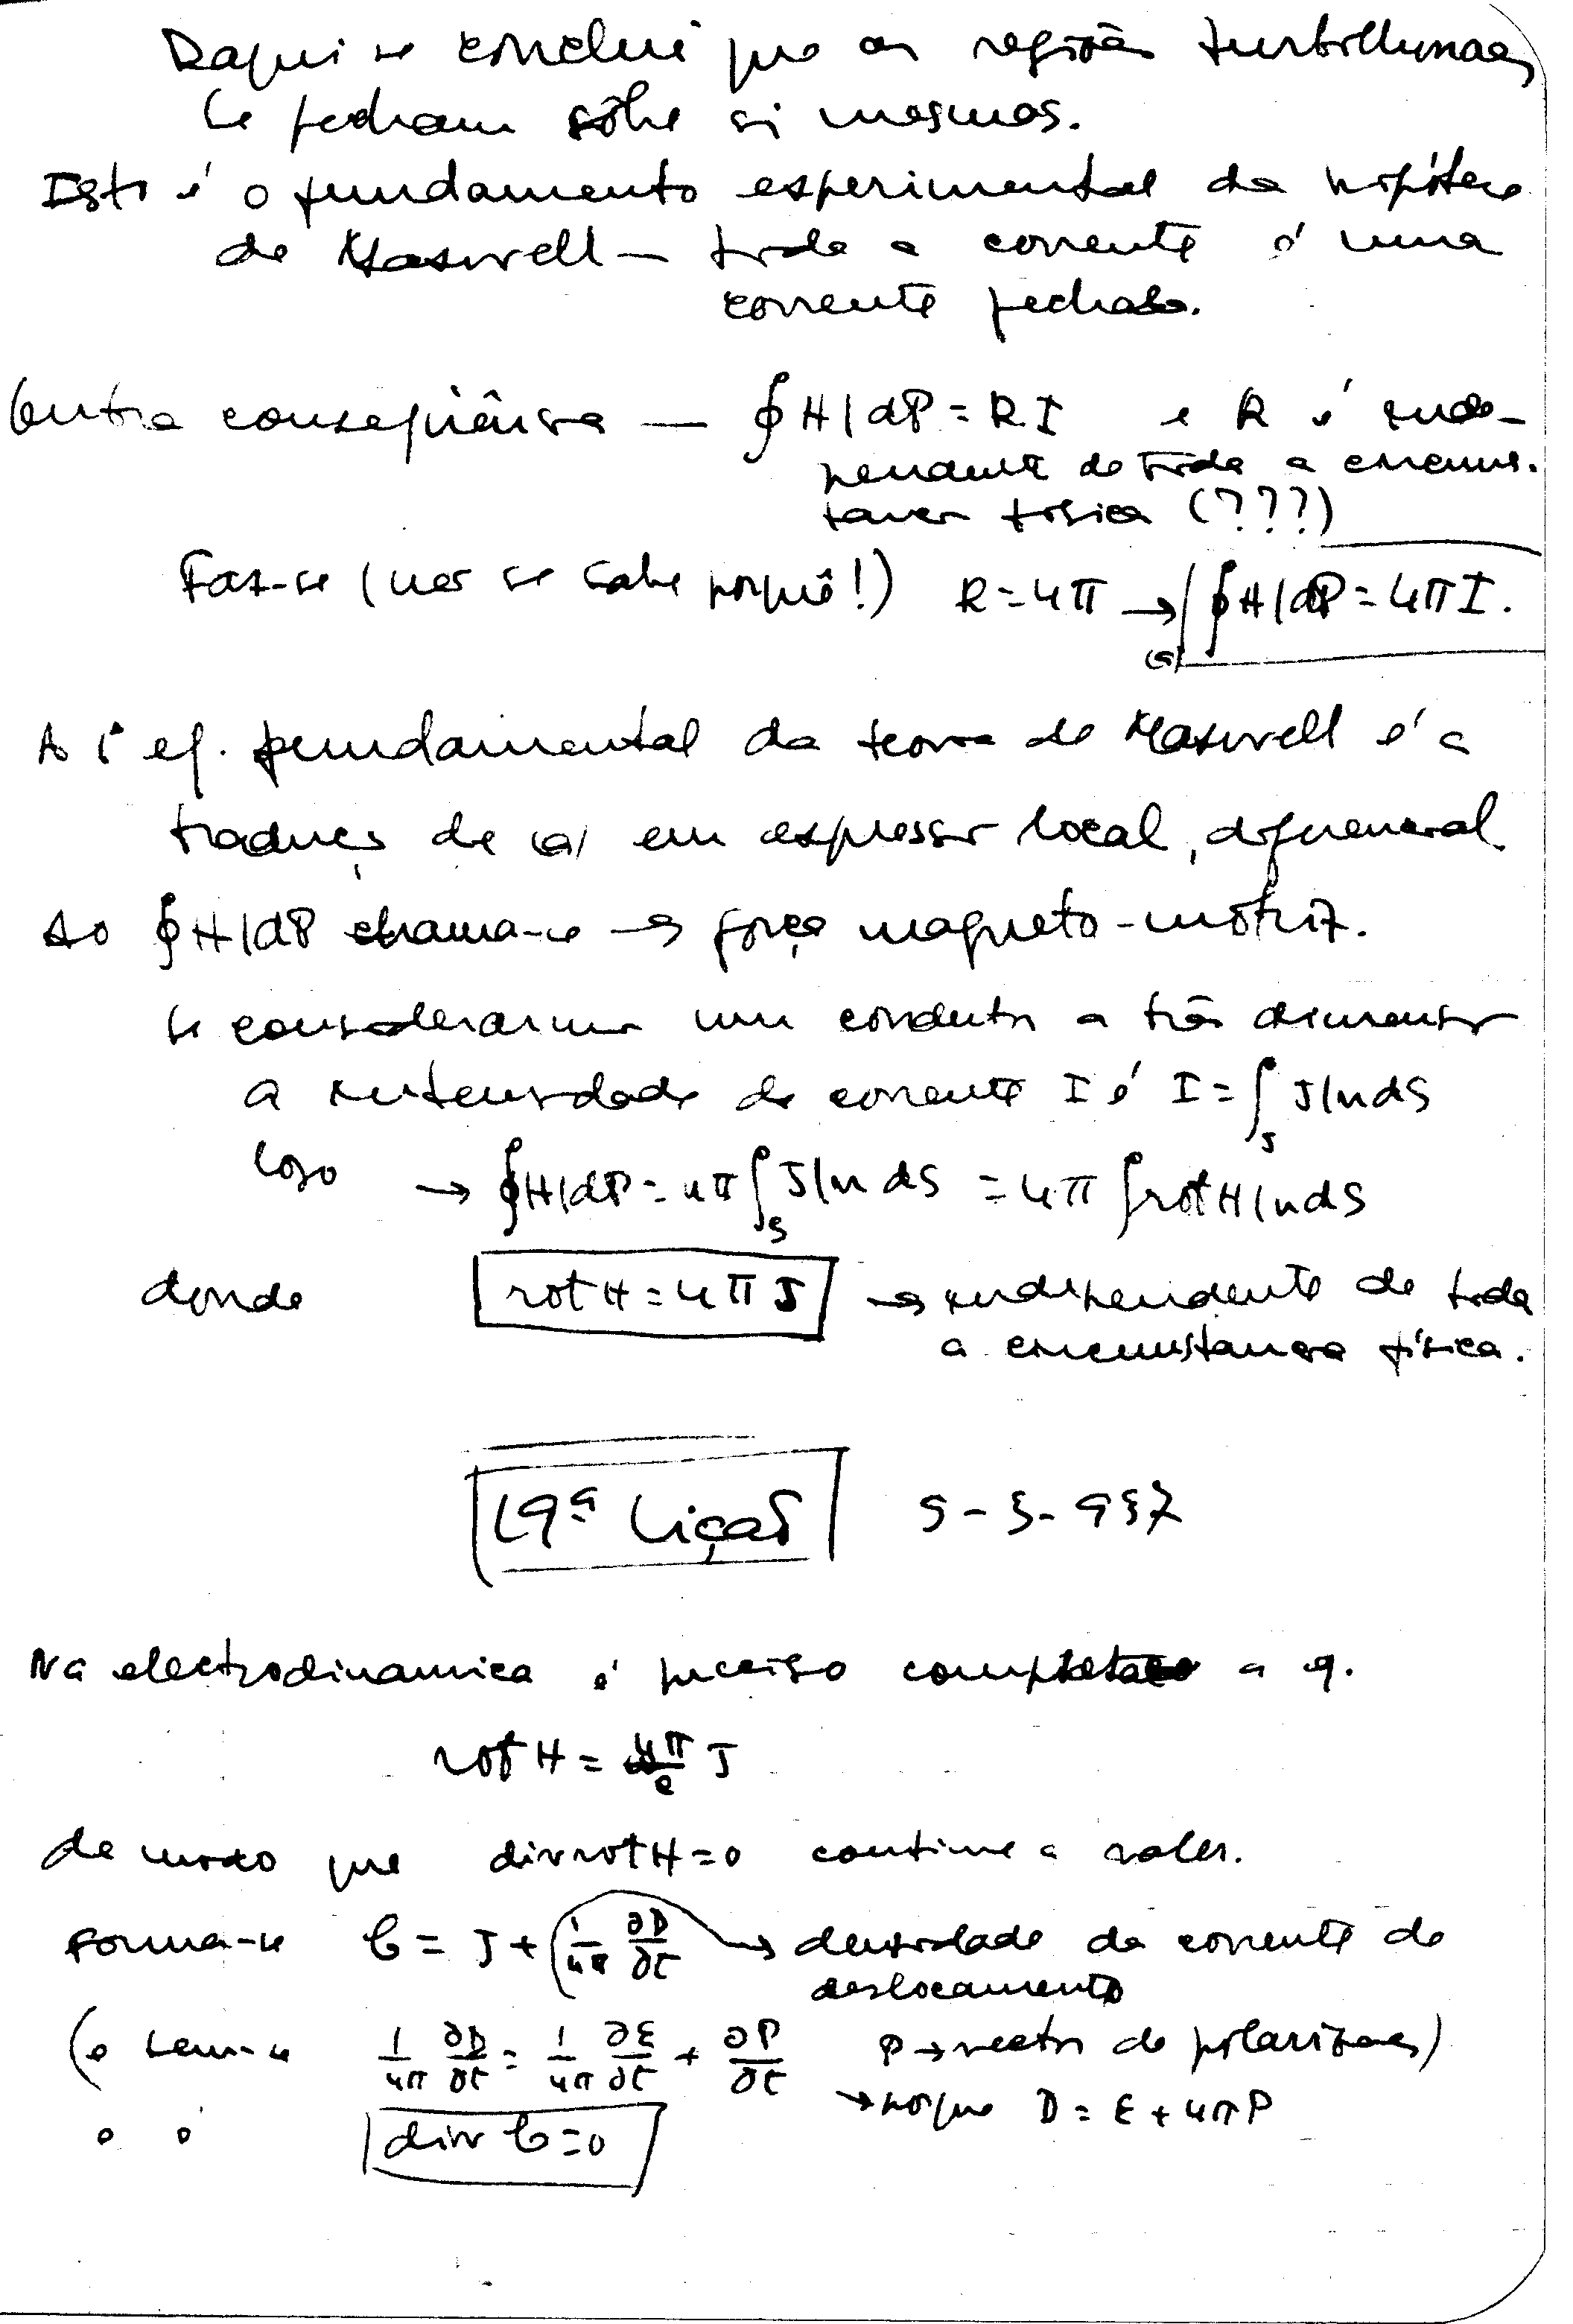 Daqui se conclui que as regiões turbilhonares
se fecham sôbre si mesmas.
Isto é o fundamento experimental da hipótese
de Maxwell — toda a corrente é uma
corrente fechada.
Outra conseqüência — ∮ H | dP = R I e R é inde-
pendente de toda a circuns-
tância física (???)
Faz-se (não se sabe porquê!) R = 4π → ∮ H | dP = 4π I.
(a)
A 1ª eq. fundamental da teoria de Maxwell é a
tradução de (a) em expressão local, diferencial.
Ao ∮ H | dP chama-se → força magneto-motriz.
Se considerarmos um condutor a três dimensões
a intensidade da corrente I é I = ∫_S J | n dS
logo → ∮ H | dP = 4π ∫_S J | n dS = 4π ∫ rot H | n dS
donde rot H = 4π J → independente de toda
a circunstância física.
19ª Lição 5-3-937
Na electrodinamica é preciso completar a eq.
rot H = 4π/c J
de modo que div rot H = 0 continue a valer.
Forma-se C = J + (1/4π ∂D/∂t → densidade da corrente de
deslocamento
(e tem-se 1/4π ∂D/∂t = 1/4π ∂E/∂t + ∂P/∂t P → vector de polarização)
→ porque D = E + 4πP
e é div C = 0